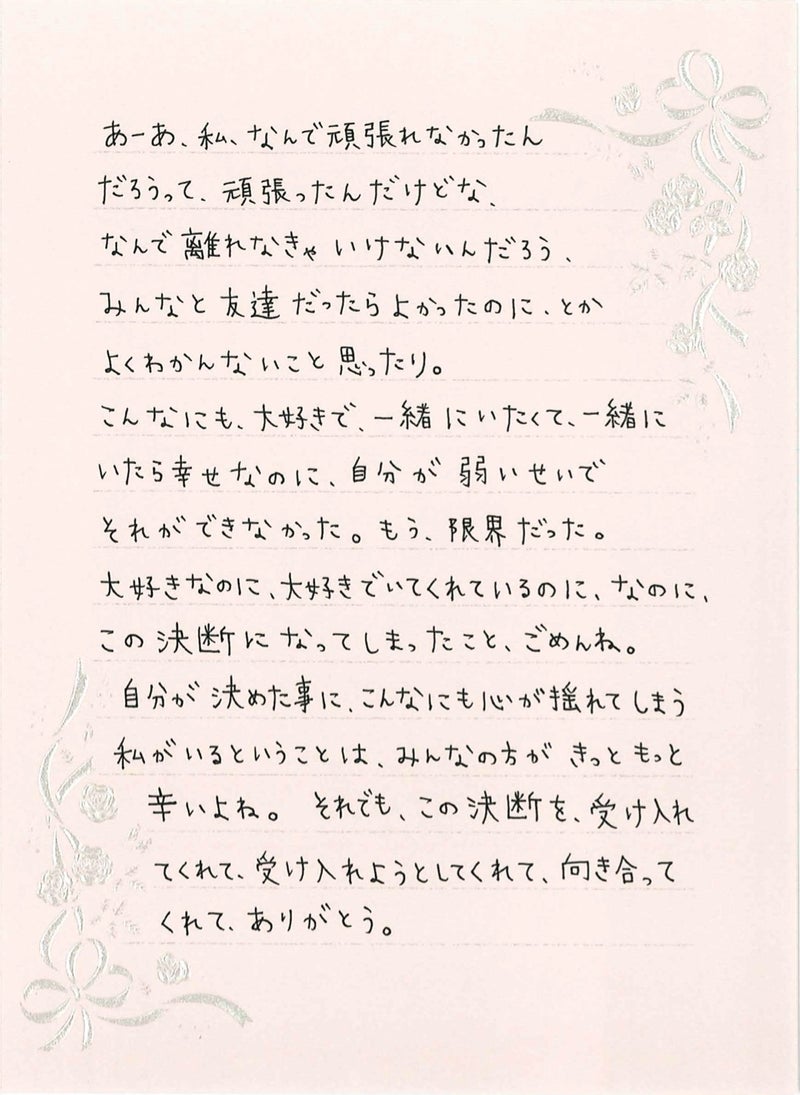 あーあ、私、なんで頑張れなかったん
だろうって、頑張ったんだけどな、
なんで離れなきゃいけないんだろう、
みんなと友達だったらよかったのに、とか
よくわかんないこと思ったり。
こんなにも、大好きで、一緒にいたくて、一緒に
いたら幸せなのに、自分が弱いせいで
それができなかった。もう、限界だった。
大好きなのに、大好きでいてくれているのに、なのに、
この決断になってしまったこと、ごめんね。
自分が決めた事に、こんなにも心が揺れてしまう
私がいるということは、みんなの方がきっともっと
辛いよね。 それでも、この決断を、受け入れ
てくれて、受け入れようとしてくれて、向き合って
くれて、ありがとう。